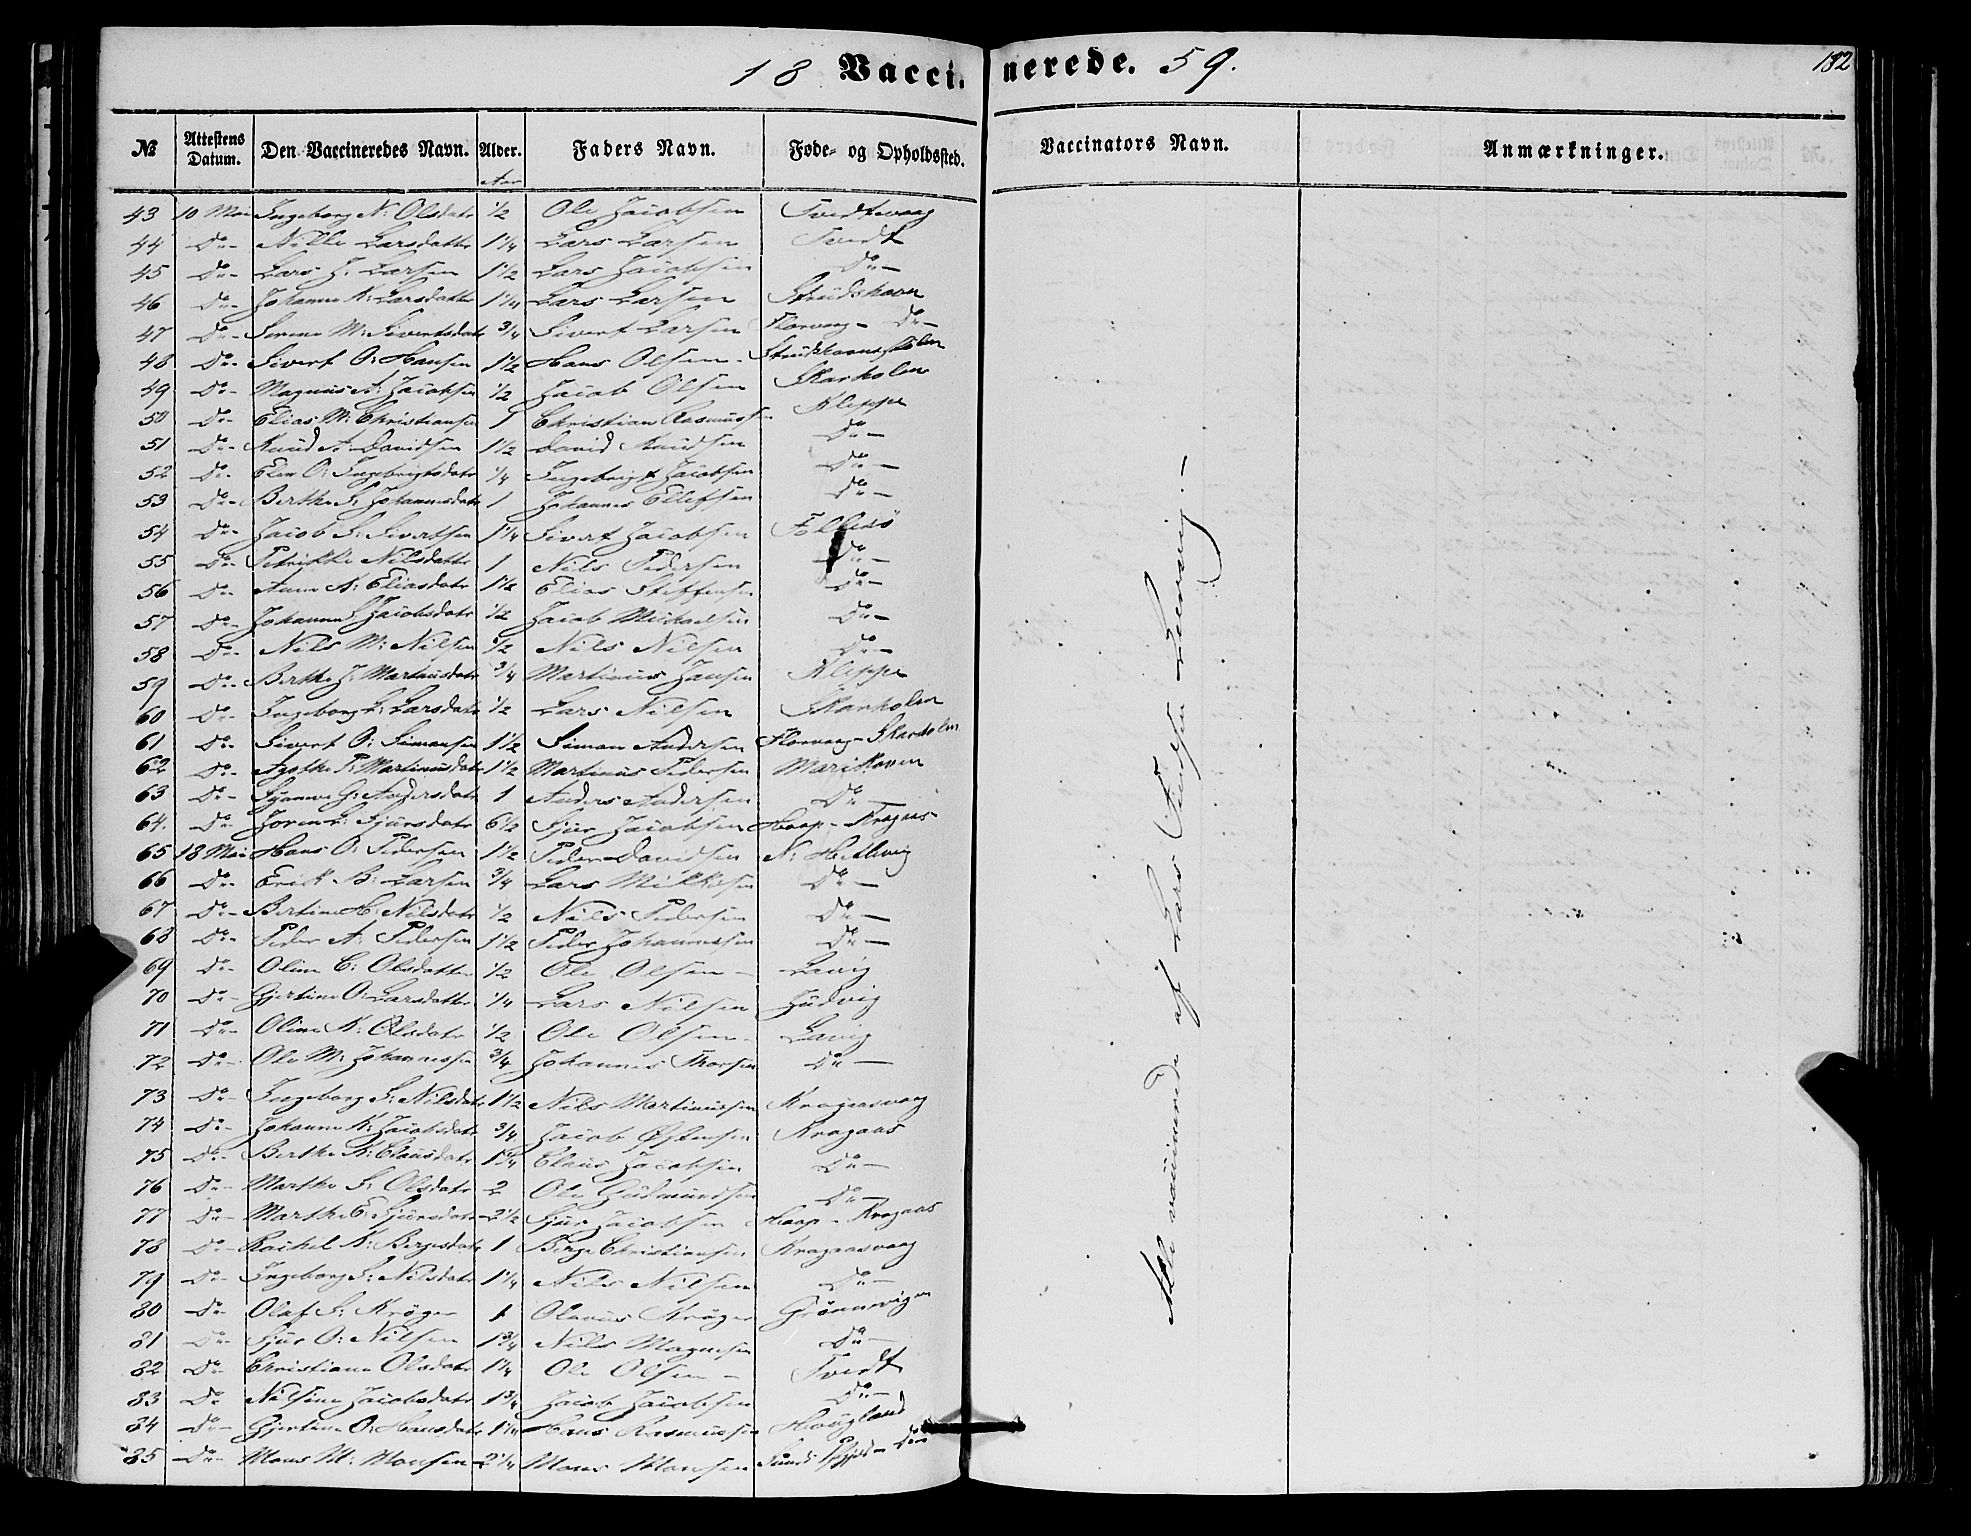 18 Vaccinerede. 59.
182
№ Attestens Datum. Den Vaccineredes Navn. Alder. Faders Navn. Føde- og Opholdssted. Vaccinators Navn. Anmærkninger.
Aar
43 10 Mai Ingeborg N: Olsdatr 1/2 Ole Jacobsen Tvedtevaag
44 Do- Nille Larsdatter 1 1/4 Lars Larsen Tvedt
45 Do- Lars J: Larsen 1 1/2 Lars Jacobsen Do-
46 Do- Johanne K: Larsdatter 1 1/4 Lars Larsen Strudshavn
47 Do- Serene M: Sivertsdatr 3/4 Sivert Larsen Florvaag - Do-
48 Do- Sivert O: Hansen 1 1/2 Hans Olsen - Strudshavnsholm
49 Do- Magnus A: Jacobsen 1/2 Jacob Olsen Skarholm
50 Do- Elias M: Christiansen 1 Christian Rasmussen Kleppe
51 Do- Knud A: Davidsen 1 1/2 David Knudsen Do-
52 Do- Elen O: Ingebrigtsdatr 1/4 Ingebrigt Jacobsen Do-
53 Do- Berthe S: Johannesdatr 1 Johannes Ellefsen Do-
54 Do- Jacob S: Sivertsen 1 1/4 Sivert Jacobsen Follesø
55 Do- Petrikke Nilsdatter 1 Nils Pedersen Do-
56 Do- Anne K: Eliasdatr 1 1/2 Elias Steffensen Do-
57 Do- Johanne S Jacobsdatr 1/2 Jacob Michaelsen Do-
58 Do- Nils M: Nilsen 1/2 Nils Nilsen Do-
59 Do- Berthe J: Martinusdatr 3/4 Martinus Jansen Kleppe
60 Do- Ingeborg L: Larsdatr 1/2 Lars Nilsen Skarholm
61 Do- Sivert O: Simonsen 1 1/2 Simon Andersen Florvaag - Skarholm
62 Do- Agathe P: Martinusdatr 1 1/2 Martinus Pedersen Marikoven
63 Do- Synneve G: Andersdatr 1 Anders Andersen Do-
64. Do- Joren L: Sjursdatr 6 1/2 Sjur Jacobsen Hoop - Kragaas-
65 18 Mai Hans O: Pedersen 1 1/2 Peder Davidsen N: Hetlevig
66 Do- Erik B: Larsen 3/4 Lars Mikkelsen Do-
67 Do- Bertine H: Nilsdatr 1/2 Nils Pedersen Do-
68 Do- Peder A: Pedersen 1 1/2 Peder Johannessen Do-
69 Do- Oline C: Olsdatter 1/2 Ole Olsen - Lavig
70 Do- Gjertine O: Larsdatter 1/4 Lars Nilsen Judvig
71 Do- Oline K: Olsdatr 1/2 Ole Olsen - Lavig
72 Do- Ole M: Johannessen 3/4 Johannes Thorsen Do-
73 Do- Ingeborg S: Nilsdatr 1 1/2 Nils Martinussen Kragaasvaag
74 Do- Johanne K: Jacobsdatr 3/4 Jacob Østensen Kragaas
75 Do- Berthe K: Clausdatr 1 3/4 Claus Jacobsen Do-
76 Do- Marthe S: Olsdatr 2 Ole Gudmundsen Do-
77 Do- Marthe E: Sjursdatr 2 1/2 Sjur Jacobsen Hoop - Kragaas
78 Do- Rachel K: Bergesdatr 1 Berge Christiansen Kragaasvaag
79 Do- Ingeborg S: Nilsdatr 1 1/4 Nils Nilsen Do-
80 Do- Olaf S: Krøger 1 Olavus Krøger Grønnevigen
81 Do- Sjur O: Nilsen 1 3/4 Nils Magnesen Do-
82 Do Christiane Olsdatr 1 1/4 Ole Olsen - Tvedt
83 Do Nilsine Jacobsdatr 1 3/4 Jacob Jacobsen Do-
84 Do- Gjertine O: Hansdatr 1 1/4 Hans Rasmussen Hougland
85 Do- Mons M: Monsen 2 1/4 Mons Monsen
Alle vaccinerede af Lars Knudsen